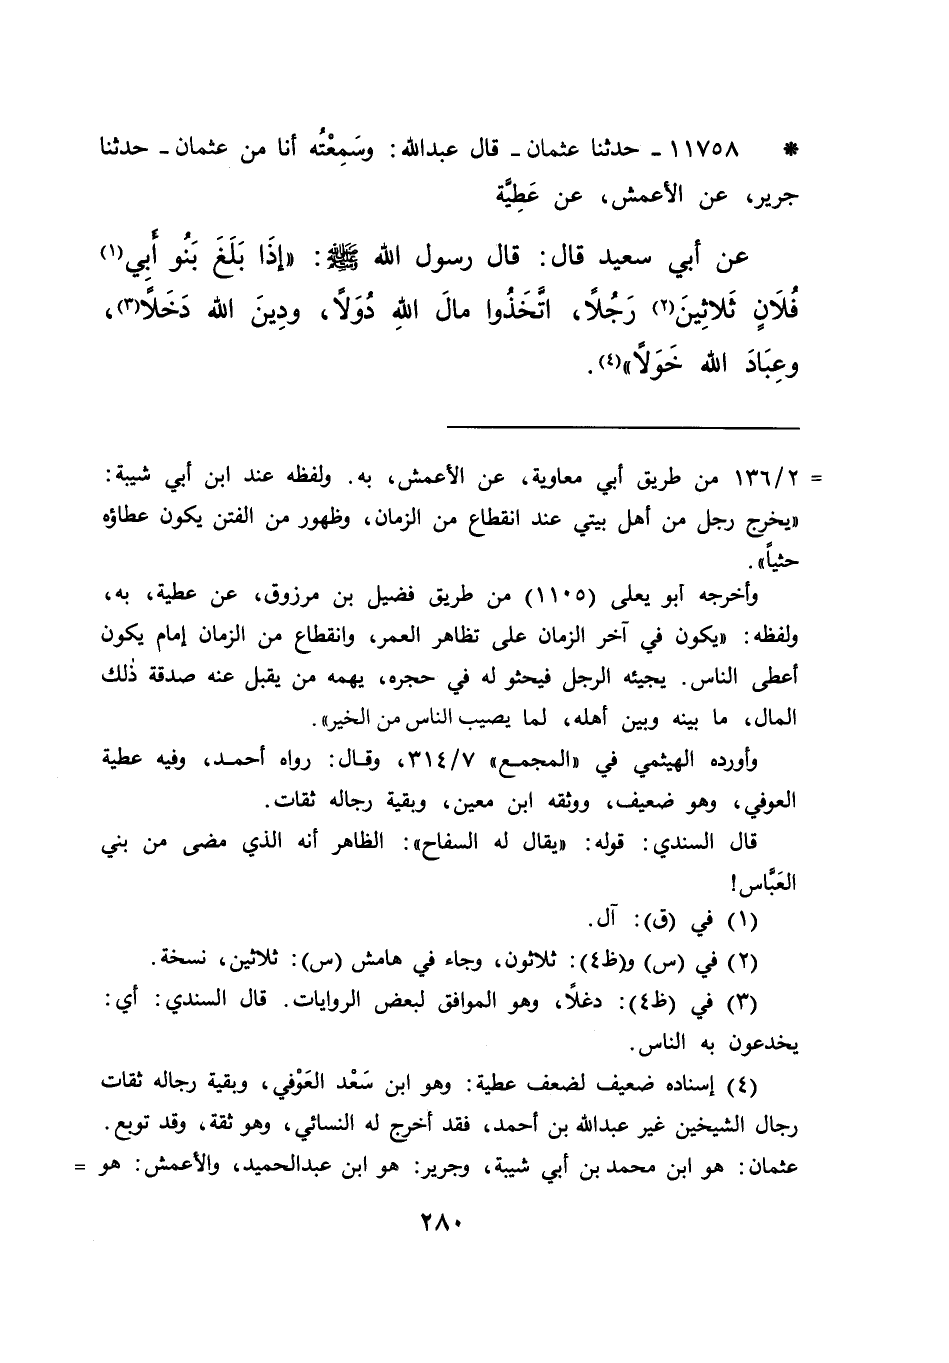 * ١١٧٥٨ ـ حدثنا عثمان ـ قال عبدالله: وسَمِعْتُه أنا من عثمان ـ حدثنا
جرير، عن الأعمش، عن عَطِيَّة
عن أبي سعيد قال: قال رسول الله ﷺ: «إذَا بَلَغَ بَنُو أَبِي(١)
فُلَانٍ ثَلاثِينَ(٢) رَجُلاً، اتَّخَذُوا مالَ اللهِ دُوَلاً، ودِينَ الله دَخَلاً(٣)،
وعِبَادَ الله خَوَلاً»(٤).
= ١٣٦/٢ من طريق أبي معاوية، عن الأعمش، به. ولفظه عند ابن أبي شيبة:
«يخرج رجل من أهل بيتي عند انقطاع من الزمان، وظهور من الفتن يكون عطاؤه
حثياً».
وأخرجه أبو يعلى (١١٠٥) من طريق فضيل بن مرزوق، عن عطية، به،
ولفظه: «يكون في آخر الزمان على تظاهر العمر، وانقطاع من الزمان إمام يكون
أعطى الناس. يجيئه الرجل فيحثو له في حجره، يهمه من يقبل عنه صدقة ذٰلك
المال، ما بينه وبين أهله، لما يصيب الناس من الخير».
وأورده الهيثمي في «المجمع» ٣١٤/٧، وقال: رواه أحمد، وفيه عطية
العوفي، وهو ضعيف، ووثقه ابن معين، وبقية رجاله ثقات.
قال السندي: قوله: «يقال له السفاح»: الظاهر أنه الذي مضى من بني
العَبَّاس!
(١) في (ق): آل.
(٢) في (س) و(ظ٤): ثلاثون، وجاء في هامش (س): ثلاثين، نسخة.
(٣) في (ظ٤): دغلاً، وهو الموافق لبعض الروايات. قال السندي: أي:
يخدعون به الناس.
(٤) إسناده ضعيف لضعف عطية: وهو ابن سَعْد العَوْفي، وبقية رجاله ثقات
رجال الشيخين غير عبدالله بن أحمد، فقد أخرج له النسائي، وهو ثقة، وقد توبع.
عثمان: هو ابن محمد بن أبي شيبة، وجرير: هو ابن عبدالحميد، والأعمش: هو =
٢٨٠